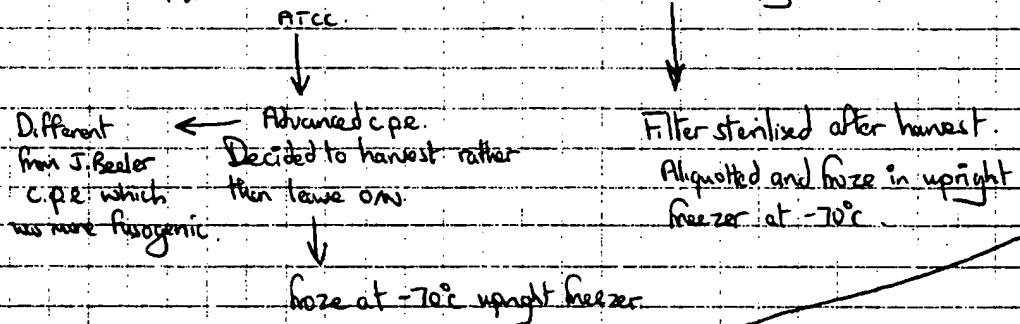 ATCC.
Different
from J. Beeler
c.p.e which
was more fusogenic.
Advanced c.p.e.
Decided to harvest rather
than leave o/w.
froze at -70°c upright freezer
Filter sterilised after harvest.
Aliquotted and froze in upright
freezer at -70°c.